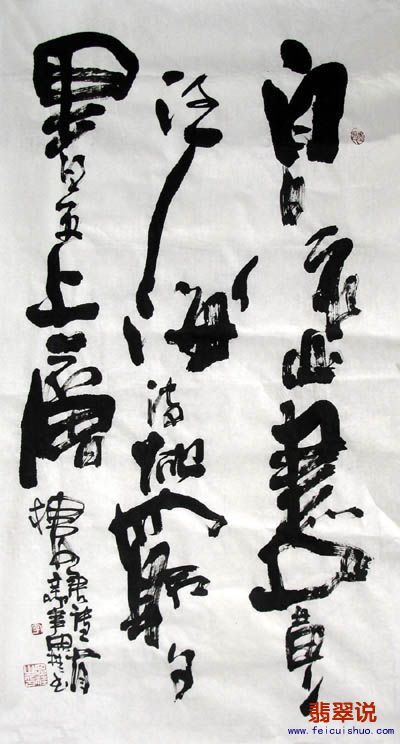 白日依山盡黄
河入海流欲窮千
里目更上一層
樓
翡翠说
www.feicuishuo.com